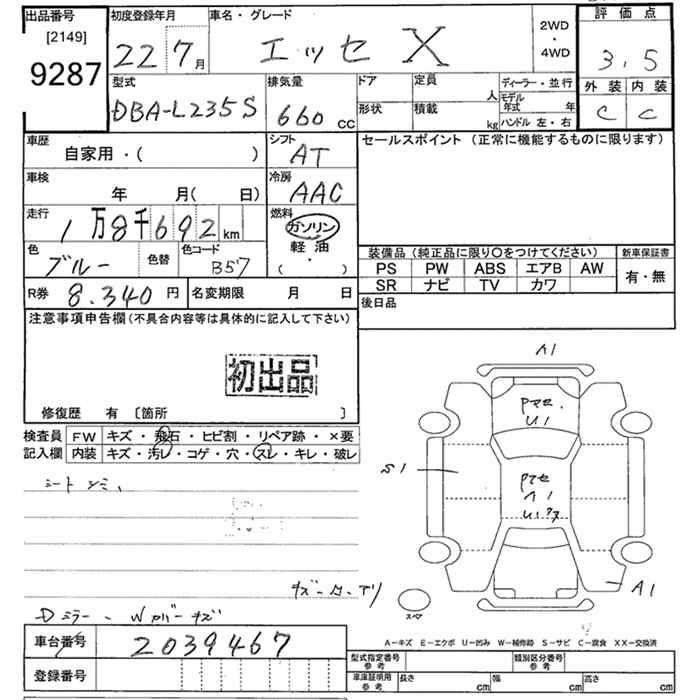 出品番号
[2149]
9287
初度登録年月
22 7月
車名・グレード
エッセ X
2WD
・
4WD
評価点
3.5
外装 内装
C C
型式
DBA-L235S
排気量
660 CC
ドア
形状
定員
人
積載
kg
ディーラー・並行
モデル年式 年
ハンドル 左・右
車歴
自家用・( )
シフト
AT
セールスポイント (正常に機能するものに限ります)
車検
年 月(日)
冷房
AAC
走行
1万8千692km
燃料
ガソリン
軽油
・
( )
色
ブルー
色替
色コード
B57
装備品 (純正品に限り〇をつけてください)
新車保証書
PS PW ABS エアB AW
SR ナビ TV カワ
有・無
R券 8.340円
名変期限 月 日
後日品
注意事項申告欄 (不具合内容等は具体的に記入して下さい)
初出品
修復歴 有 [箇所 ]
検査員
記入欄
FW キズ・飛石・ヒビ割・リペア跡・×要
内装 キズ・汚レ・コゲ・穴・スレ・キレ・破レ
シートシミ、
Dミラー、Wカバーキズ
A1
U1
S1
A1
U1
A1
スペア
A-キズ E-エクボ U-凹み W-補修跡 S-サビ C-腐食 XX-交換済
車台番号 2039467
登録番号
型式指定番号
参考
類別区分番号
参考
車庫証明用
参考
長さ cm
幅 cm
高さ cm